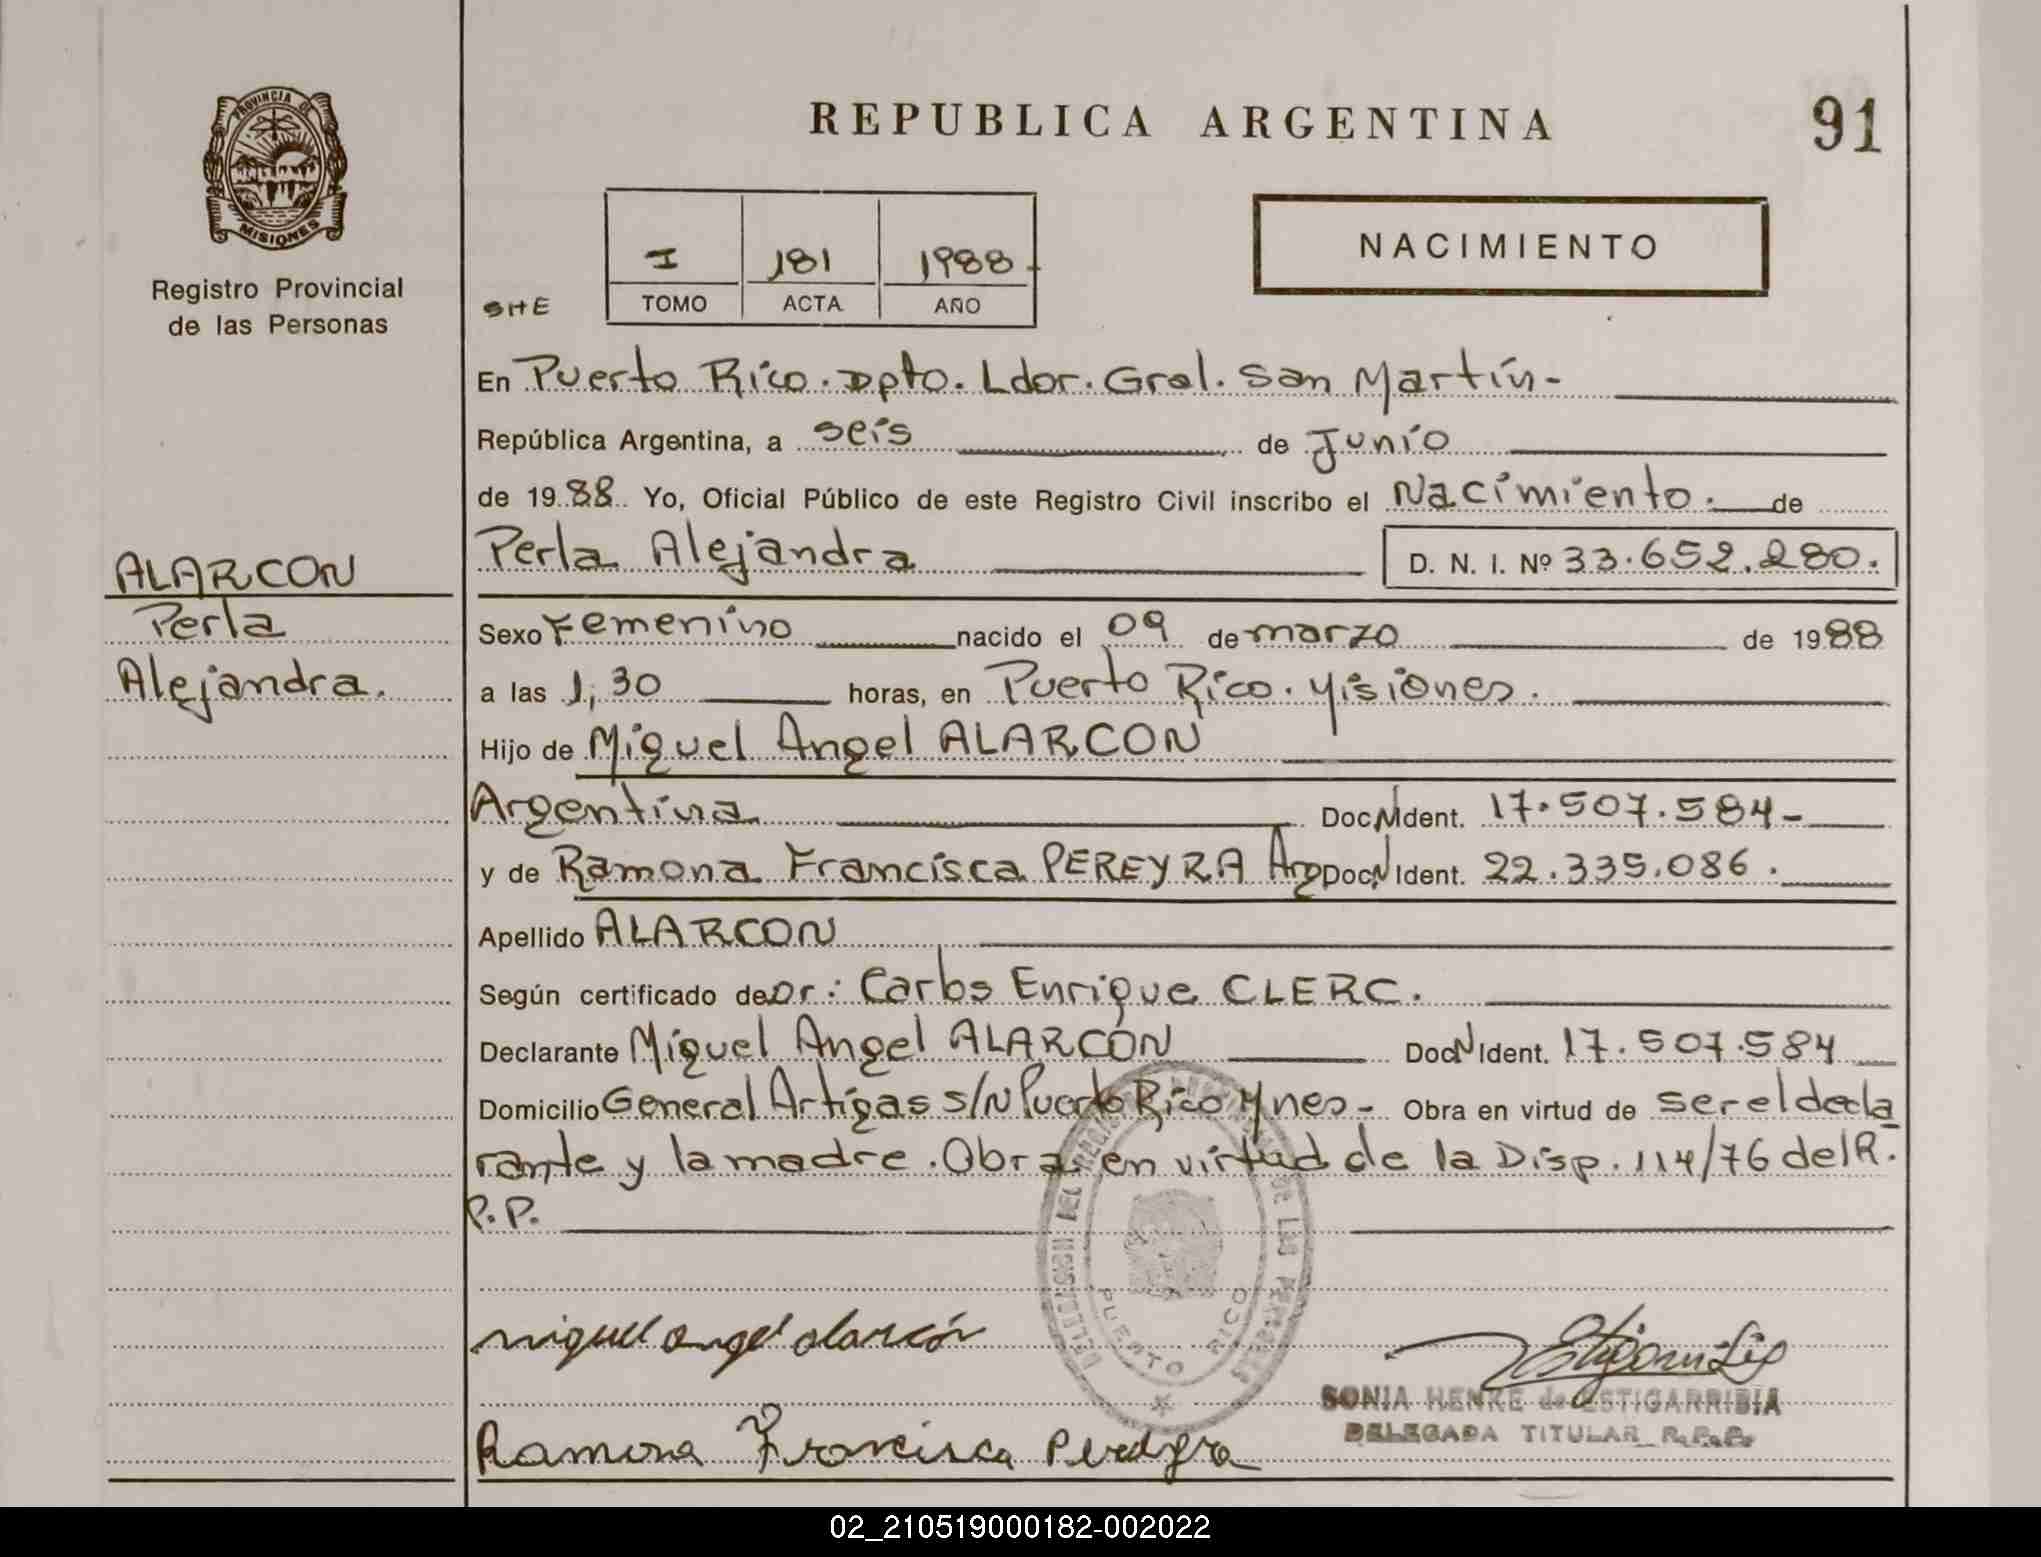 REPUBLICA ARGENTINA
91
PROVINCIA DE
MISIONES
Registro Provincial
de las Personas
I 181 1988
TOMO ACTA AÑO
NACIMIENTO
SHE
En Puerto Rico. Dpto. Ldor. Gral. San Martín-
República Argentina, a seis de Junio
de 1988 Yo, Oficial Público de este Registro Civil inscribo el Nacimiento. de
Perla Alejandra D. N. I. Nº 33.652.280.
ALARCON
Perla
Alejandra.
Sexo Femenino nacido el 09 de marzo de 1988
a las 1,30 horas, en Puerto Rico. Misiones.
Hijo de Miguel Angel ALARCON
Argentina Doc N Ident. 17.507.584-
y de Ramona Francisca PEREYRA Arg Doc N Ident. 22.335.086.
Apellido ALARCON
Según certificado de Dr: Carlos Enrique CLERC.
Declarante Miguel Angel ALARCÓN Doc N Ident. 17.507.584
Domicilio General Artigas s/N Puerto Rico Mnes- Obra en virtud de ser el decla
rante y la madre. Obra en virtud de la Disp. 114/76 del R.
P.P.
DELEGACION DEL DE LAS PERSONAS
PUERTO RICO
miguel angel alarcón
SONIA HENKE de ESTIGARRIBIA
DELEGADA TITULAR R.P.P.
Ramona Francisca Pereyra
02_210519000182-002022